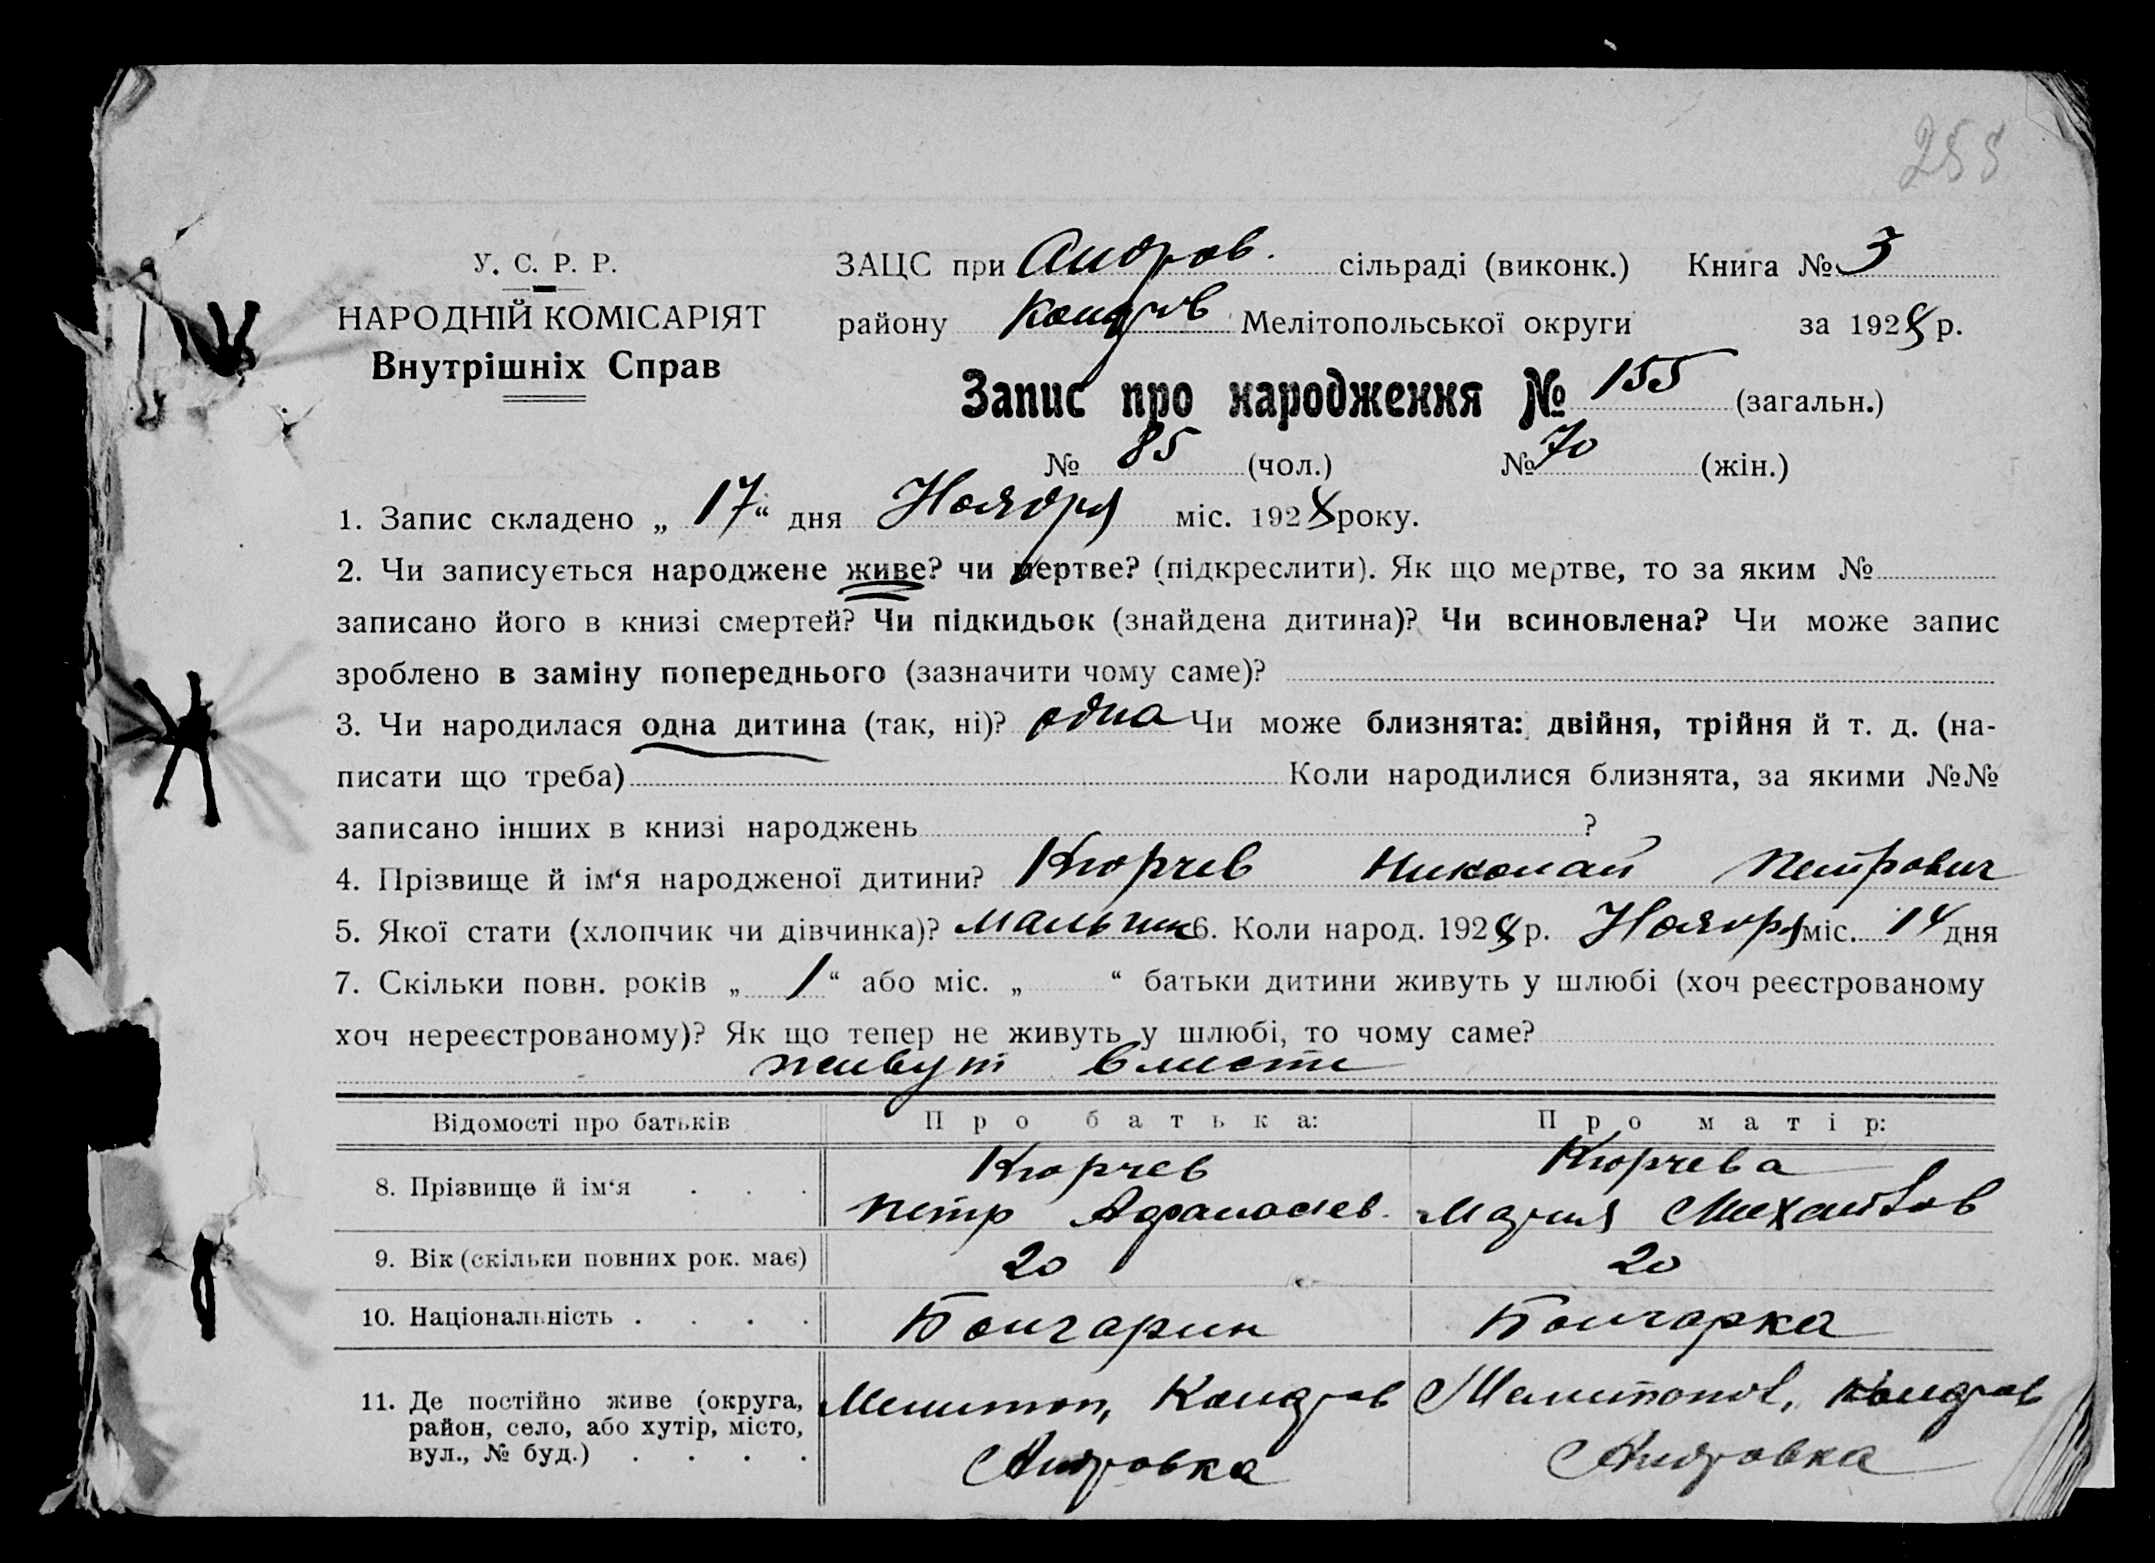 255
У. С. Р. Р.
НАРОДНІЙ КОМІСАРІЯТ
Внутрішніх Справ
ЗАЦС при Андров. сільраді (виконк.) Книга № 3
району Коларов Мелітопольської округи за 1928 р.
Запис про народження № 155 (загальн.)
№ 85 (чол.) № 70 (жін.)
1. Запис складено „ 17 “ дня Ноября міс. 1928 року.
2. Чи записується народжене живе? чи мертве? (підкреслити). Як що мертве, то за яким №
записано його в книзі смертей? Чи підкидьок (знайдена дитина)? Чи всиновлена? Чи може запис
зроблено в заміну попереднього (зазначити чому саме)?
3. Чи народилася одна дитина (так, ні)? одна Чи може близнята: двійня, трійня й т. д. (на-
писати що треба) Коли народилися близнята, за якими №№
записано інших в книзі народжень ?
4. Прізвище й ім‘я народженої дитини? Кюрчев Николай Петрович
5. Якої стати (хлопчик чи дівчинка)? мальчик 6. Коли народ. 1928 р. Ноября міс. 14 дня
7. Скільки повн. років „ 1 “ або міс. „ “ батьки дитини живуть у шлюбі (хоч реєстрованому
хоч нереєстрованому)? Як що тепер не живуть у шлюбі, то чому саме?
живут вместе
Відомості про батьків Про батька: Про матір:
8. Прізвище й ім‘я . . . Кюрчев Кюрчева
Петр Афанасиев. Мария Михайлов
9. Вік (скільки повних рок. має) 20 20
10. Національність . . . . Болгарин Болгарка
11. Де постійно живе (округа,
район, село, або хутір, місто,
вул., № буд.) . . . .
Мелитоп, Мелитопол,
Андровка Андровка